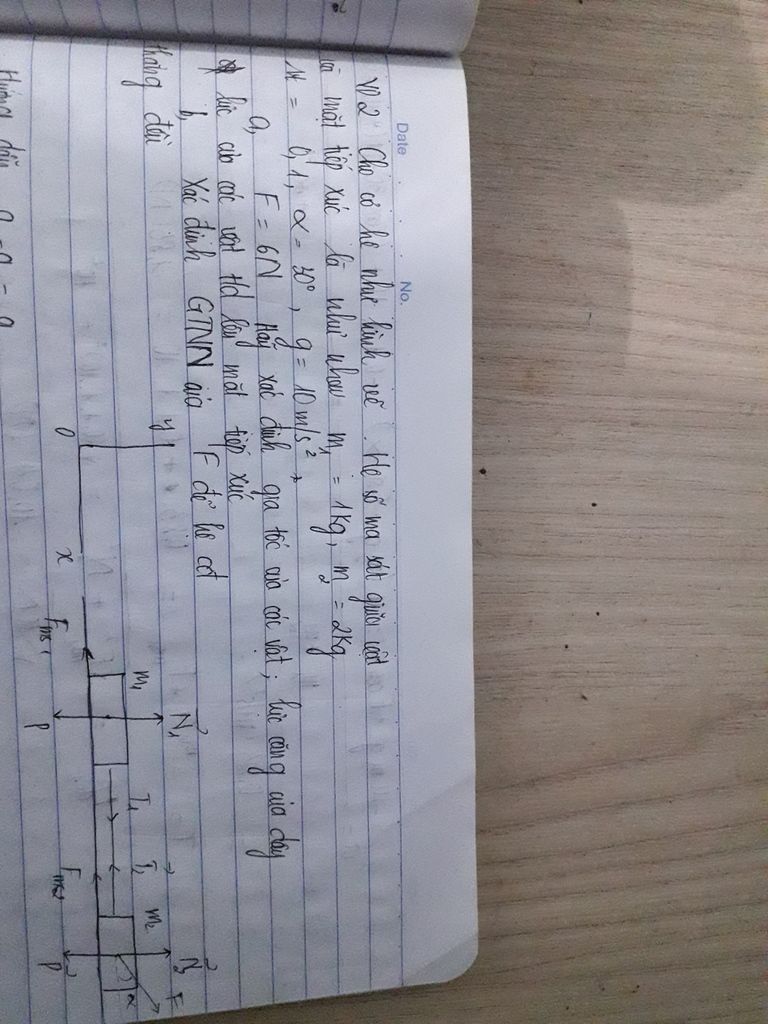 Date No.
VD2 Cho cơ hệ như hình vẽ. Hệ số ma sát giữa vật
và mặt tiếp xúc là như nhau m₁ = 1kg, m₂ = 2kg
M = 0,1, α = 30°, g = 10 m/s²
a, F = 6N Hãy xác định gia tốc của các vật, lực căng của dây
lực do các vật td lên mặt tiếp xúc
b, Xác định GTNN của F để hệ cđ
thẳng đều
y
O
x
m₁
N₁
T₁
T₂
m₂
N₂
F
α
Fms1
P
Fms2
P₂
Hướng dẫn